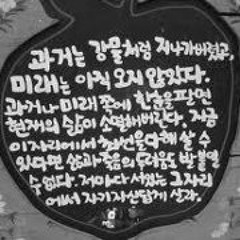 과거는 강물처럼 지나가버렸고,
미래는 아직 오지 않았다.
과거나 미래 쪽에 한눈을 팔면
현재의 삶이 소멸해버린다. 지금
이 자리에서 최선을 다해 살 수
있다면 삶과 죽음의 두려움도 발붙일
수 없다. 저마다 서있는 그 자리
에서 자기 자신답게 살라.